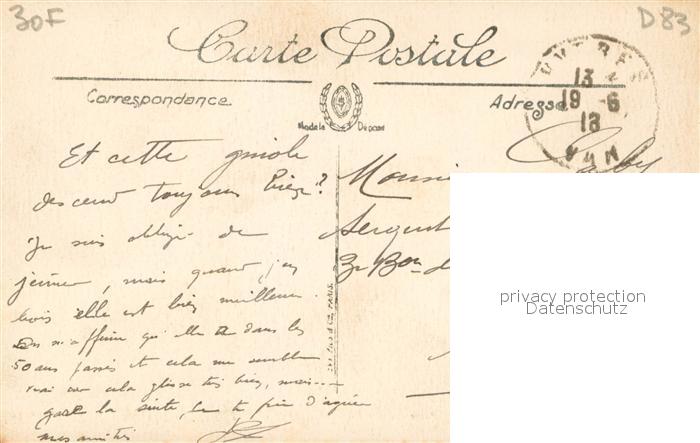 30F
D83
Carte Postale
Correspondance
Adresse
Modèle Déposé
13
19 - 6
18
Et cette gniole
descend toujours bien?
Je suis obligé de
jeûner, mais quand j'en
bois elle est bien meilleure.
On m'affirme qu'elle a dans les
50 ans passés et cela me semble
vrai car cela glisse très bien, mais---
gare la suite, je te prie d'agréer
mes amitiés
Sergent
3e Bon d
privacy protection
Datenschutz